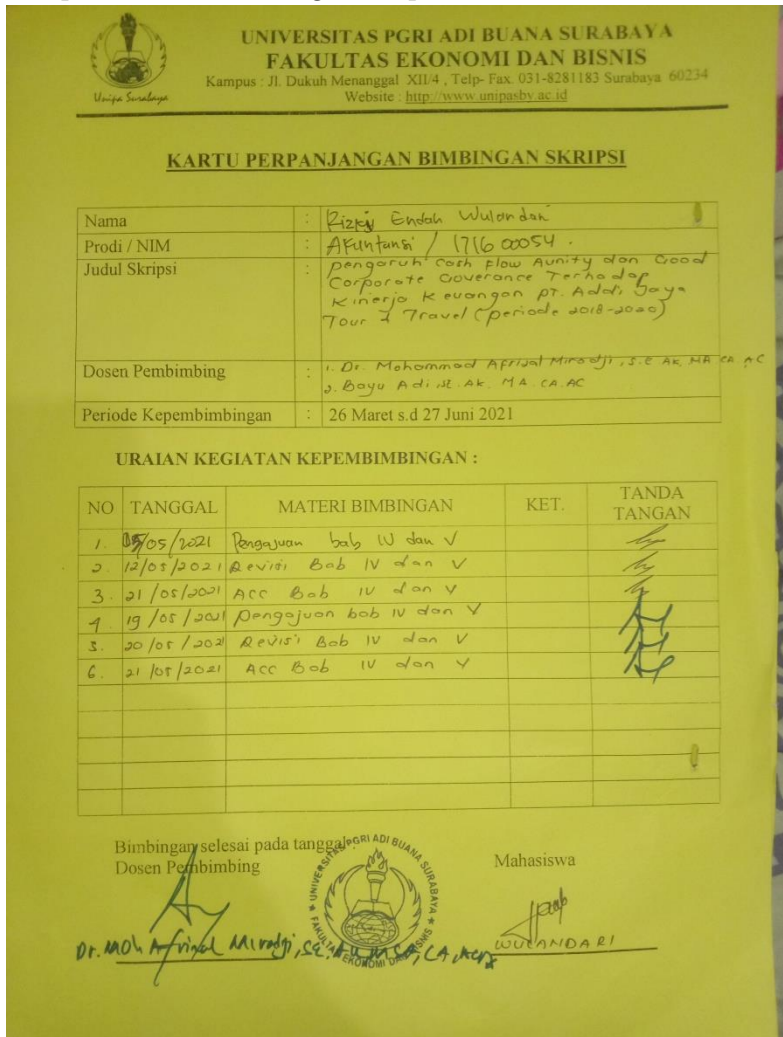 UNIVERSITAS PGRI ADI BUANA SURABAYA
FAKULTAS EKONOMI DAN BISNIS
Kampus : Jl. Dukuh Menanggal XII/4 , Telp- Fax. 031-8281183 Surabaya 60234
Website : http://www.unipasby.ac.id
Unipa Surabaya
KARTU PERPANJANGAN BIMBINGAN SKRIPSI
Nama : Rizky Endah Wulandari
Prodi / NIM : Akuntansi / 171600054 .
Judul Skripsi : pengaruh Cash Flow Aunity dan Good
Corporate Goverance Terhadap
Kinerja Keuangan PT. Addi Jaya
Tour & Travel (periode 2018-2020)
Dosen Pembimbing : 1. Dr. Mohammad Afrizal Miradji, S.E Ak, MA CA AC
2. Bayu Adi, SE. Ak. MA. CA. AC
Periode Kepembimbingan : 26 Maret s.d 27 Juni 2021
URAIAN KEGIATAN KEPEMBIMBINGAN :
NO TANGGAL MATERI BIMBINGAN KET. TANDA TANGAN
1. 05/05/2021 Pengajuan bab IV dan V
2. 12/05/2021 Revisi Bab IV dan V
3. 21/05/2021 ACC Bab IV dan V
4. 19/05/2021 pengajuan bab IV dan V
5. 20/05/2021 Revisi Bab IV dan V
6. 21/05/2021 Acc Bab IV dan V
Bimbingan selesai pada tanggal :
Dosen Pembimbing Mahasiswa
UNIVERSITAS PGRI ADI BUANA SURABAYA
FAKULTAS EKONOMI DAN BISNIS
Dr. Moh Afrizal Miradji, SE, Ak, MSA, CA,
WULANDARI